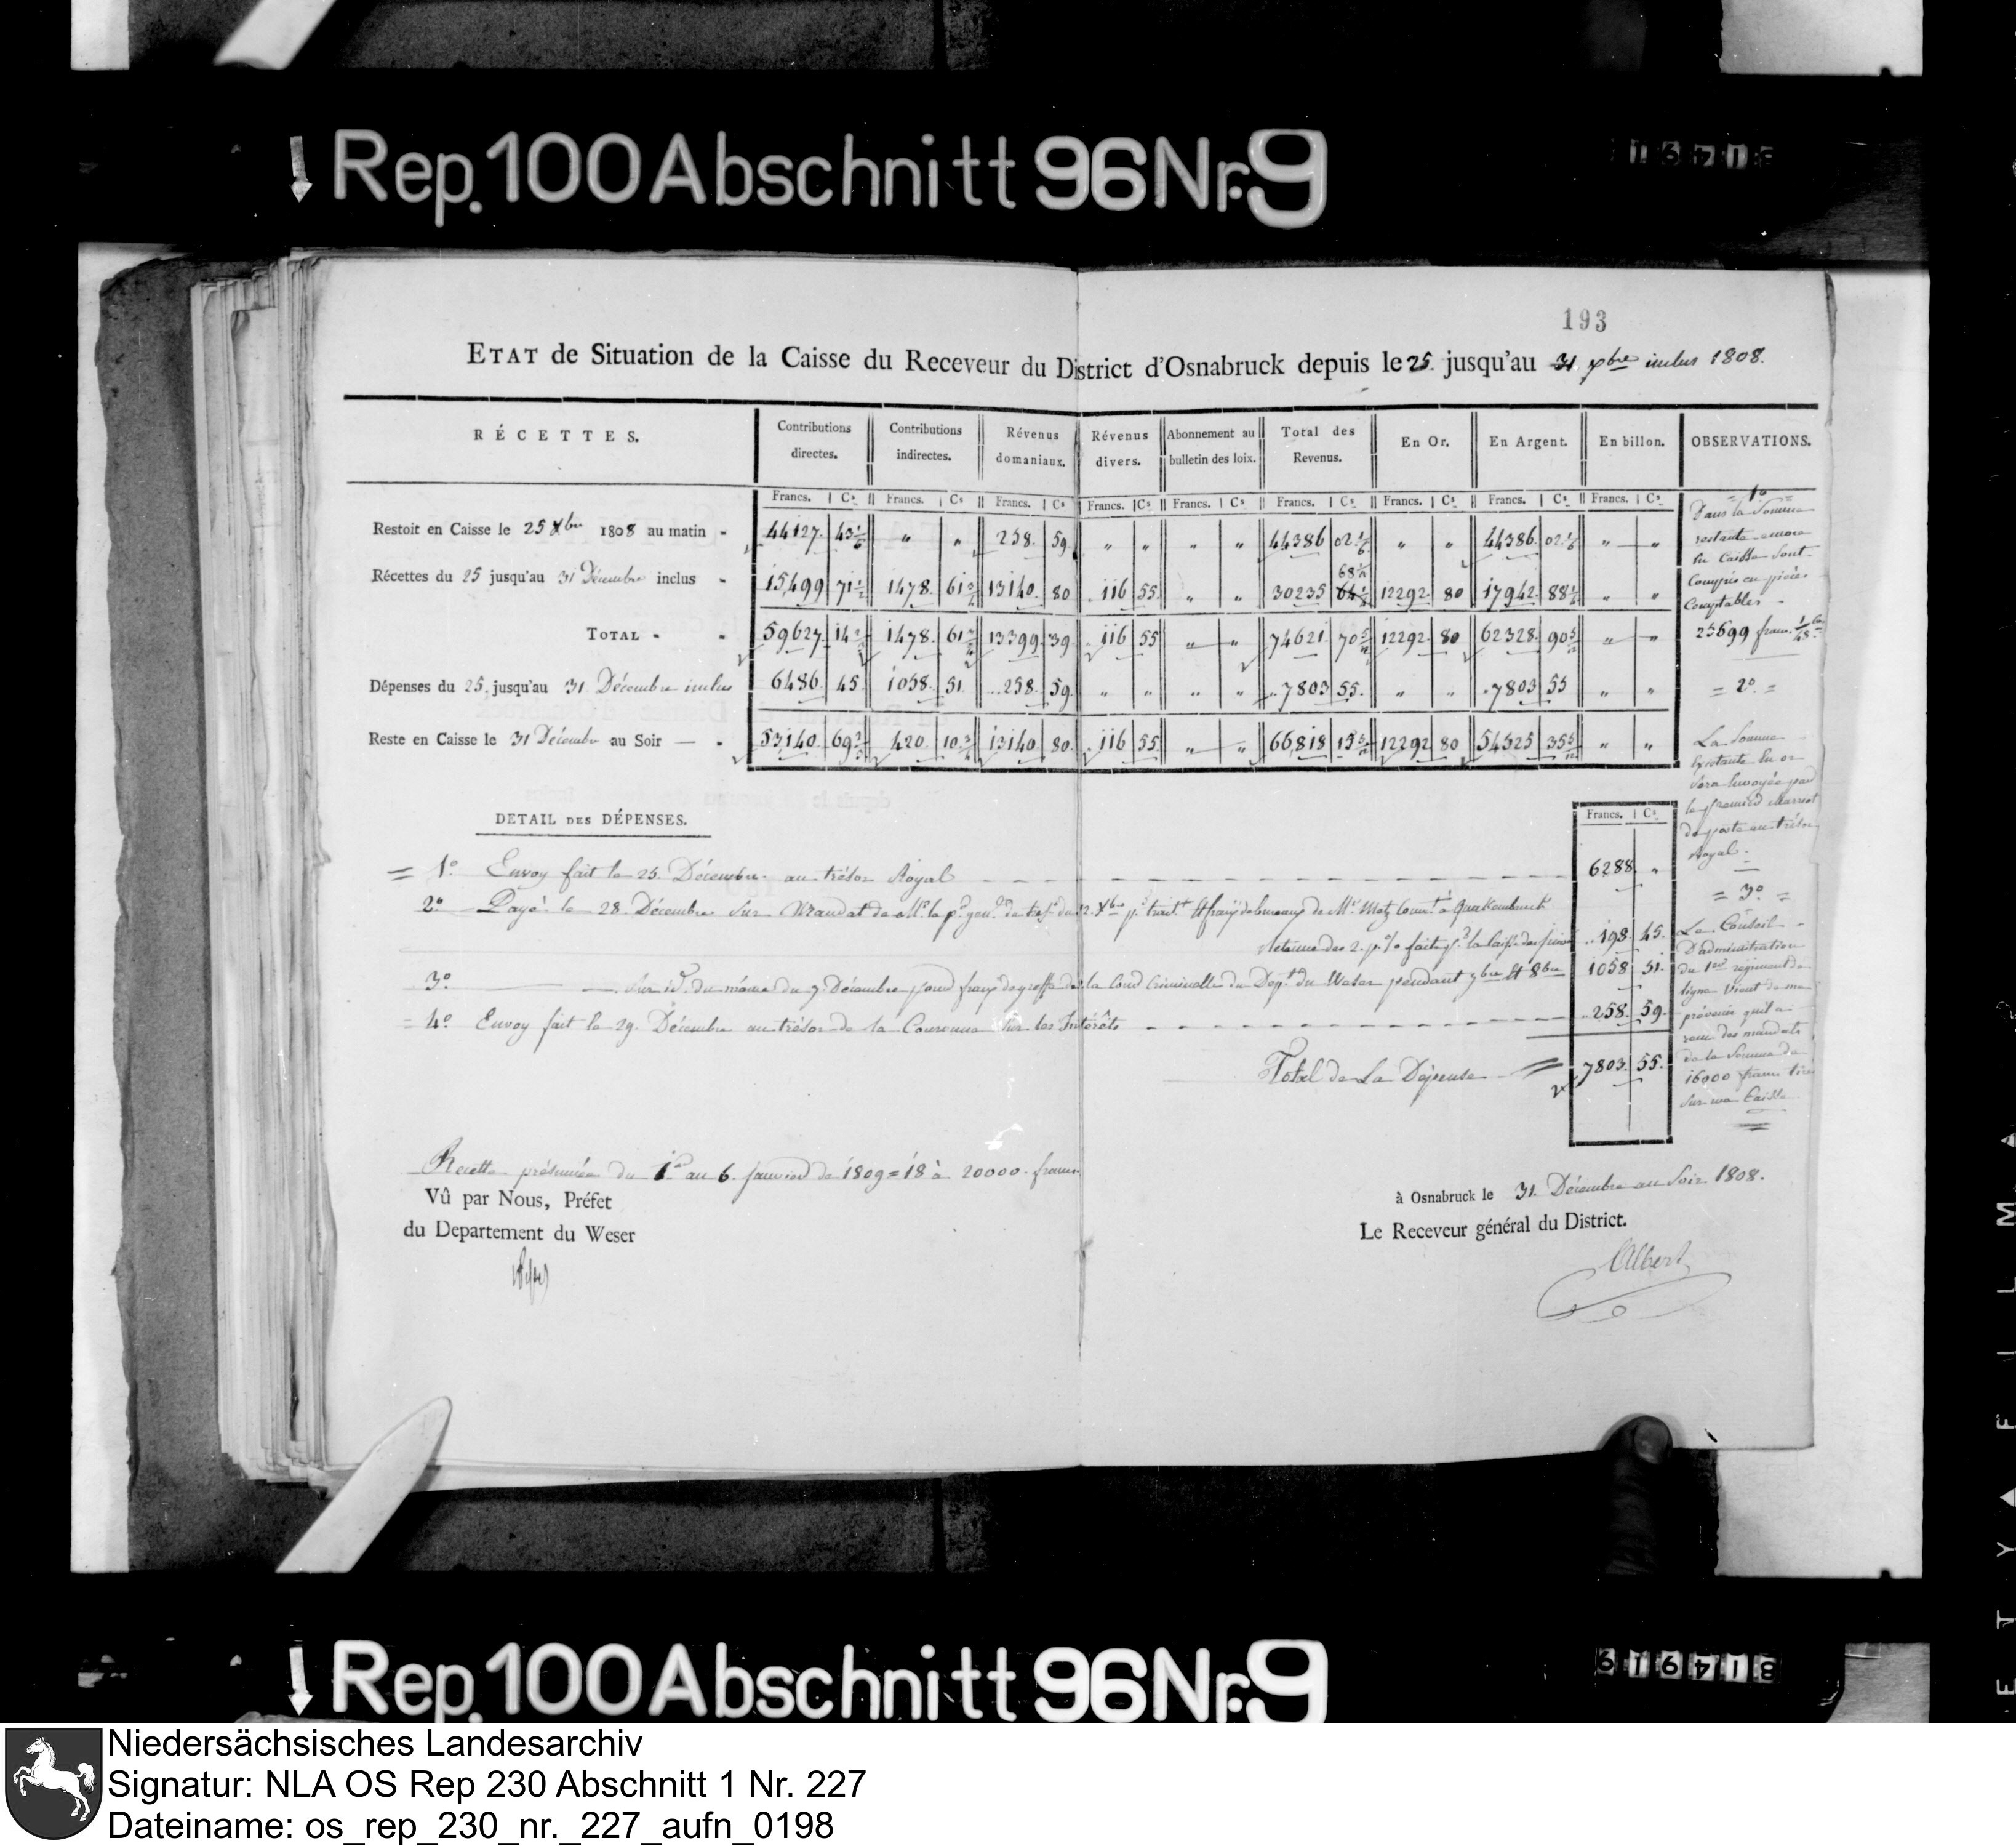 Rep. 100 Abschnitt 96 Nr. 9
193
ETAT de Situation de la Caisse du Receveur du District d'Osnabruck depuis le 25. jusqu'au 31 xbre inclus 1808.
RÉCETTES. Contributions directes. Contributions indirectes. Révenus domaniaux. Révenus divers. Abonnement au bulletin des loix. Total des Revenus. En Or. En Argent. En billon. OBSERVATIONS.
Francs. Cs. Francs. Cs Francs. Cs Francs. Cs Francs. Cs Francs. Cs. Francs. Cs Francs. Cs Francs. Cs
Restoit en Caisse le 25 Xbre 1808 au matin - 44127. 43 1/6 " " 258. 59. " " " " 44386 02 1/6 " " 44386. 02 1/6 " "
68 1/2
Récettes du 25 jusqu'au 31 Décembre inclus - 15499 71 1/2 1478. 61 3/4 13140. 80 116 55. " " 30235 64 1/4 12292. 80 17942. 88 1/4 " "
TOTAL - - 59627. 14 2/3 1478. 61 3/4 13399. 39. 116 55 " " 74621. 70 5/12 12292. 80 62328. 90 5/12 " "
Dépenses du 25. jusqu'au 31 Décembre inclus 6486. 45. 1058. 51. 258. 59. " " " " 7803 55. " " 7803 55 " "
Reste en Caisse le 31 Décembre au Soir — - 53140. 69 2/3 420. 10 3/4 13140. 80. 116 55. " " 66,818 15 5/12 12292 80 54525 35 5/12 " "
= 1º =
Dans la Somme
restante encore
En Caisse Sont
Compris en pièces
Comptables -
25699 francs
= 2º. =
La Somme
Existante En or
Sera Envoyée par
le premier Charriot
de poste au trésor
Royal.
= 3º. =
Le Conseil
D'administration
du 1er régiment de
ligne Vient de me
prévenir qu'il a
reçu des mandats
de la Somme de
16000 francs tirés
Sur ma Caisse
DETAIL DES DÉPENSES.
Francs. Cs.
= 1º Envoy fait le 25. Décembre au trésor Royal 6288. "
2º Payé le 28. Décembre Sur Mandat de Mr. le pr. gen. du 12. Xbre pr. trait.t Et frais de bureau de Mr. Metz Com.t à Quakenbruck
retenue des 2. p. % faite pr. la Caisse 198. 45.
3º — Sur id. du même du 7. Décembre pour frais de greffe de la Cour Criminelle du Dept. du Weser pendant 7bre Et 8bre 1058 51.
= 4º Envoy fait le 29. Décembre au trésor de la Couronne Sur les Intérêts 258. 59.
Total de La Dépense = 7803. 55.
Recette présumée du 1er au 6. Janvier de 1809 = 18 à 20000. francs
Vû par Nous, Préfet
du Departement du Weser
à Osnabruck le 31. Décembre au Soir 1808.
Le Receveur général du District.
Albert
Rep. 100 Abschnitt 96 Nr. 9
Niedersächsisches Landesarchiv
Signatur: NLA OS Rep 230 Abschnitt 1 Nr. 227
Dateiname: os_rep_230_nr._227_aufn_0198